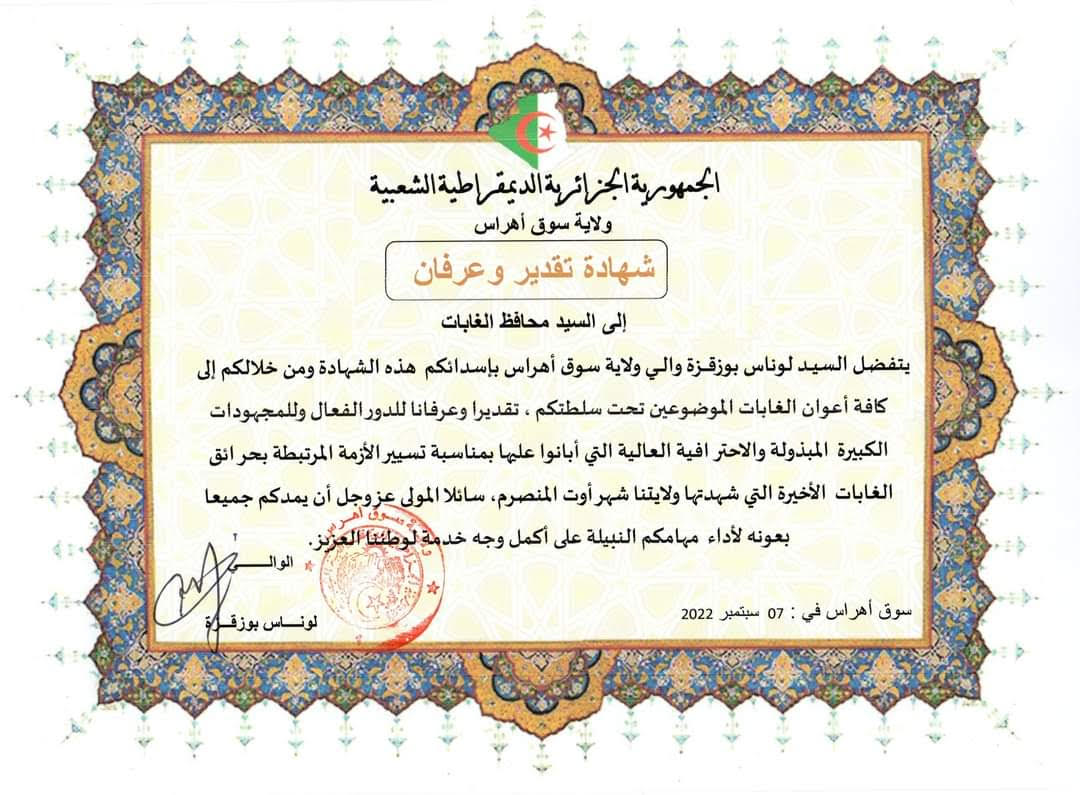 الجمهورية الجزائرية الديمقراطية الشعبية
ولاية سوق أهراس
شهادة تقدير وعرفان
إلى السيد محافظ الغابات
يتفضل السيد لوناس بوزقزة والي ولاية سوق أهراس بإسدائكم هذه الشهادة ومن خلالكم إلى
كافة أعوان الغابات الموضوعين تحت سلطتكم ، تقديرا وعرفانا للدور الفعال وللمجهودات
الكبيرة المبذولة والاحترافية العالية التي أبانوا عليها بمناسبة تسيير الأزمة المرتبطة بحرائق
الغابات الأخيرة التي شهدتها ولايتنا شهر أوت المنصرم، سائلا المولى عزوجل أن يمدكم جميعا
بعونه لأداء مهامكم النبيلة على أكمل وجه خدمة لوطننا العزيز.
الوالـــــي
سوق أهراس في : 07 سبتمبر 2022
لونـــاس بوزقـــزة
سوق أهراس